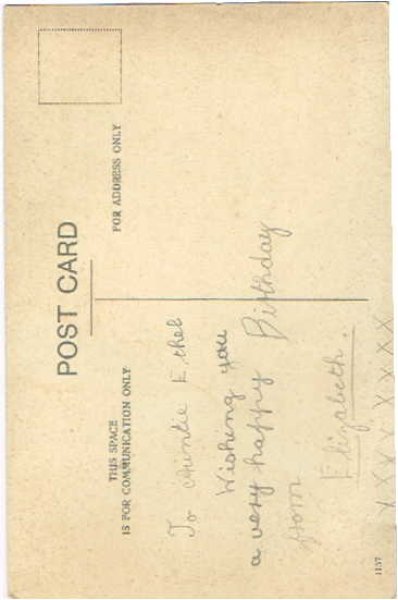 POST CARD
THIS SPACE
IS FOR COMMUNICATION ONLY
FOR ADDRESS ONLY
To Auntie Ethel
Wishing you
a very happy Birthday
from
Elizabeth.
XXXX XXXX
1157